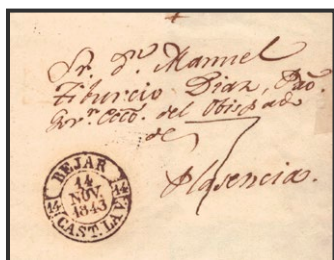 Sr. Dn. Manuel
Tiburcio Diaz, Pbo.
Gor. Ecco. del Obispado
de
Plasencia.
BEJAR
14
NOV.
1843
14
14
CAST. LA V.